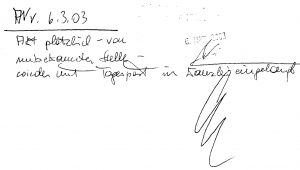 AV v. 6.3.03
Akt plötzlich - von
unbekannter Stelle -
wieder mit Tagespost in Kanzlei eingelangt